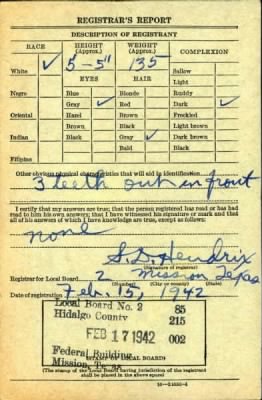 REGISTRAR'S REPORT
DESCRIPTION OF REGISTRANT
RACE HEIGHT (Approx.) WEIGHT (Approx.) COMPLEXION
White ✓ 5-5" 135 Sallow
EYES HAIR Light
Negro Blue Blonde Ruddy
Gray ✓ Red Dark ✓
Oriental Hazel Brown Freckled
Brown Black Light brown
Indian Black Gray ✓ Dark brown
Bald Black
Filipino
Other obvious physical characteristics that will aid in identification
3 teeth out in front
I certify that my answers are true; that the person registered has read or has had
read to him his own answers; that I have witnessed his signature or mark and that
all of his answers of which I have knowledge are true, except as follows:
none
S. D. Hendrix
(Signature of registrar)
Registrar for Local Board 2 Mission Texas
(Number) (City or county) (State)
Date of registration Feb. 15, 1942
Local Board No. 2 85
Hidalgo County 215
FEB 17 1942 002
Federal Building
Mission, Texas
(STAMP OF LOCAL BOARD)
(The stamp of the Local Board having jurisdiction of the registrant
shall be placed in the above space)